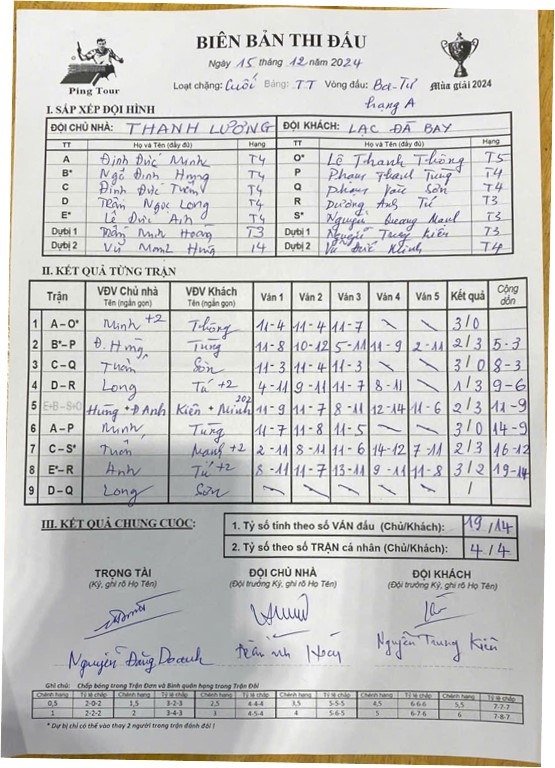 BIÊN BẢN THI ĐẤU
Ping Tour
Ngày 15 tháng 12 năm 2024
Loạt chặng: Cuối Bảng: TT Vòng đấu: Ba-Tư
hạng A
Mùa giải 2024
I. SẮP XẾP ĐỘI HÌNH
ĐỘI CHỦ NHÀ: THANH LƯƠNG ĐỘI KHÁCH: LẠC ĐÀ BAY
TT Họ và Tên (đầy đủ) Hạng TT Họ và Tên (đầy đủ) Hạng
A Đinh Đức Minh T4 O* Lê Thanh Thông T5
B* Ngô Đình Hưng T4 P Phạm Thanh Tùng T4
C Đinh Đức Tuấn T4 Q Phạm Văn Sơn T4
D Trần Ngọc Long T4 R Dương Anh Tú T3
E* Lê Đức Anh T4 S* Nguyễn Quang Mạnh T3
Dự bị 1 Trần Minh Hoàng T3 Dự bị 1 Nguyễn Trung Kiên T3
Dự bị 2 Vũ Mạnh Hùng T4 Dự bị 2 Vũ Đức Minh T4
II. KẾT QUẢ TỪNG TRẬN
Trận VĐV Chủ nhà Tên (ngắn gọn) VĐV Khách Tên (ngắn gọn) Ván 1 Ván 2 Ván 3 Ván 4 Ván 5 Kết quả Cộng dồn
1 A – O* Minh +2 Thông 11-4 11-4 11-7 3/0
2 B*– P Đ. Hưng Tùng 11-8 10-12 5-11 11-9 2-11 2/3 5-3
3 C – Q Tuấn Sơn 11-3 11-4 11-3 3/0 8-3
4 D – R Long Tú +2 4-11 9-11 11-7 8-11 1/3 9-6
5 E+B – S+O Hùng + Đ Anh Kiên + Minh 202 11-9 11-7 8-11 12-14 11-6 2/3 11-9
6 A – P Minh Tùng 11-7 11-8 11-5 3/0 14-9
7 C – S* Tuấn Mạnh +2 2-11 8-11 11-6 14-12 7-11 2/3 16-12
8 E*– R Anh Tú +2 8-11 11-7 13-11 9-11 11-8 3/2 19-14
9 D – Q Long Sơn /
III. KẾT QUẢ CHUNG CUỘC:
1. Tỷ số tính theo số VÁN đấu (Chủ/Khách): 19/14
2. Tỷ số theo số TRẬN cá nhân (Chủ/Khách): 4/4
TRỌNG TÀI ĐỘI CHỦ NHÀ ĐỘI KHÁCH
(Ký, ghi rõ Họ Tên) (Đội trưởng Ký, ghi rõ Họ Tên) (Đội trưởng Ký, ghi rõ Họ Tên)
Nguyễn Đăng Doanh Nguyễn Trung Kiên
Ghi chú: Chấp bóng trong Trận Đơn và Bình quân hạng trong Trận Đôi
Chênh hạng Tỷ lệ chấp Chênh hạng Tỷ lệ chấp Chênh hạng Tỷ lệ chấp Chênh hạng Tỷ lệ chấp Chênh hạng Tỷ lệ chấp Chênh hạng Tỷ lệ chấp
0,5 2-0-2 1,5 3-2-3 2,5 4-4-4 3,5 5-5-5 4,5 6-6-6 5,5 7-7-7
1 2-2-2 2 3-4-3 3 4-5-4 4 5-6-5 5 6-7-6 6 7-8-7
* Dự bị chỉ có thể vào thay 2 người trong trận đánh đôi !